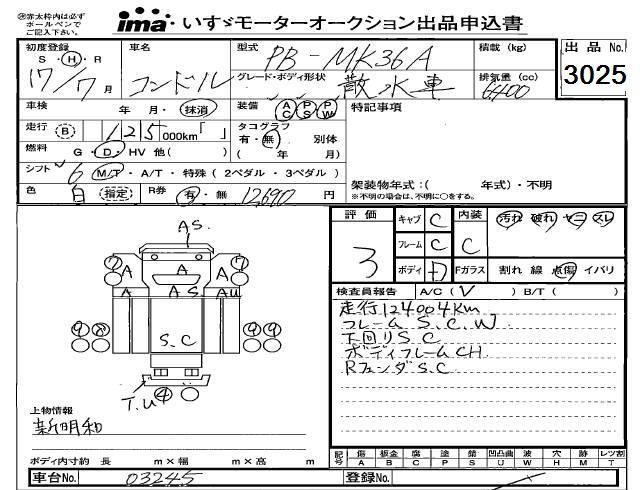 ※赤太枠内は必ず
ボールペンで
ご記入下さい。
ima いすゞモーターオークション出品申込書
初度登録
S・H・R
17/7月
車名
コンドル
型式
PB-MK36A
グレード・ボディ形状
散水車
積載(kg)
排気量(cc)
6400
出品No.
3025
車検 年・月・抹消
装備 AC PS PW
特記事項
走行 B 125 000km「 」
タコグラフ
有・無 別体
( 年 月)
燃料 G・D・HV 他( )
シフト 6 M/T・A/T・特殊(2ペダル・3ペダル)
架装物年式:( 年式)・不明
※不明の場合は、不明に○をする。
色 白 指定 R券 有・無 12,690円
評価
3
キャブ C
フレーム C
ボディ D
内装
C
汚れ 破れ ヤニ スレ
Fガラス 割れ 線 点傷 イバリ
検査員報告 A/C(V) B/T( )
走行124004Km
フレーム S.C.W
下回りS.C
ボディフレームCH
RフェンダS.C
A S.
7 A A A 7
A A S A U
9 8 S.C 9 9
T.U 4
上物情報
新明和
ボディ内寸約 長 m×幅 m×高 m
記号 傷 鈑金 腐 塗 錆 凹凸曲 波 穴 跡 レツ割
A B C P S U W H M T
車台No. 03245
登録No.